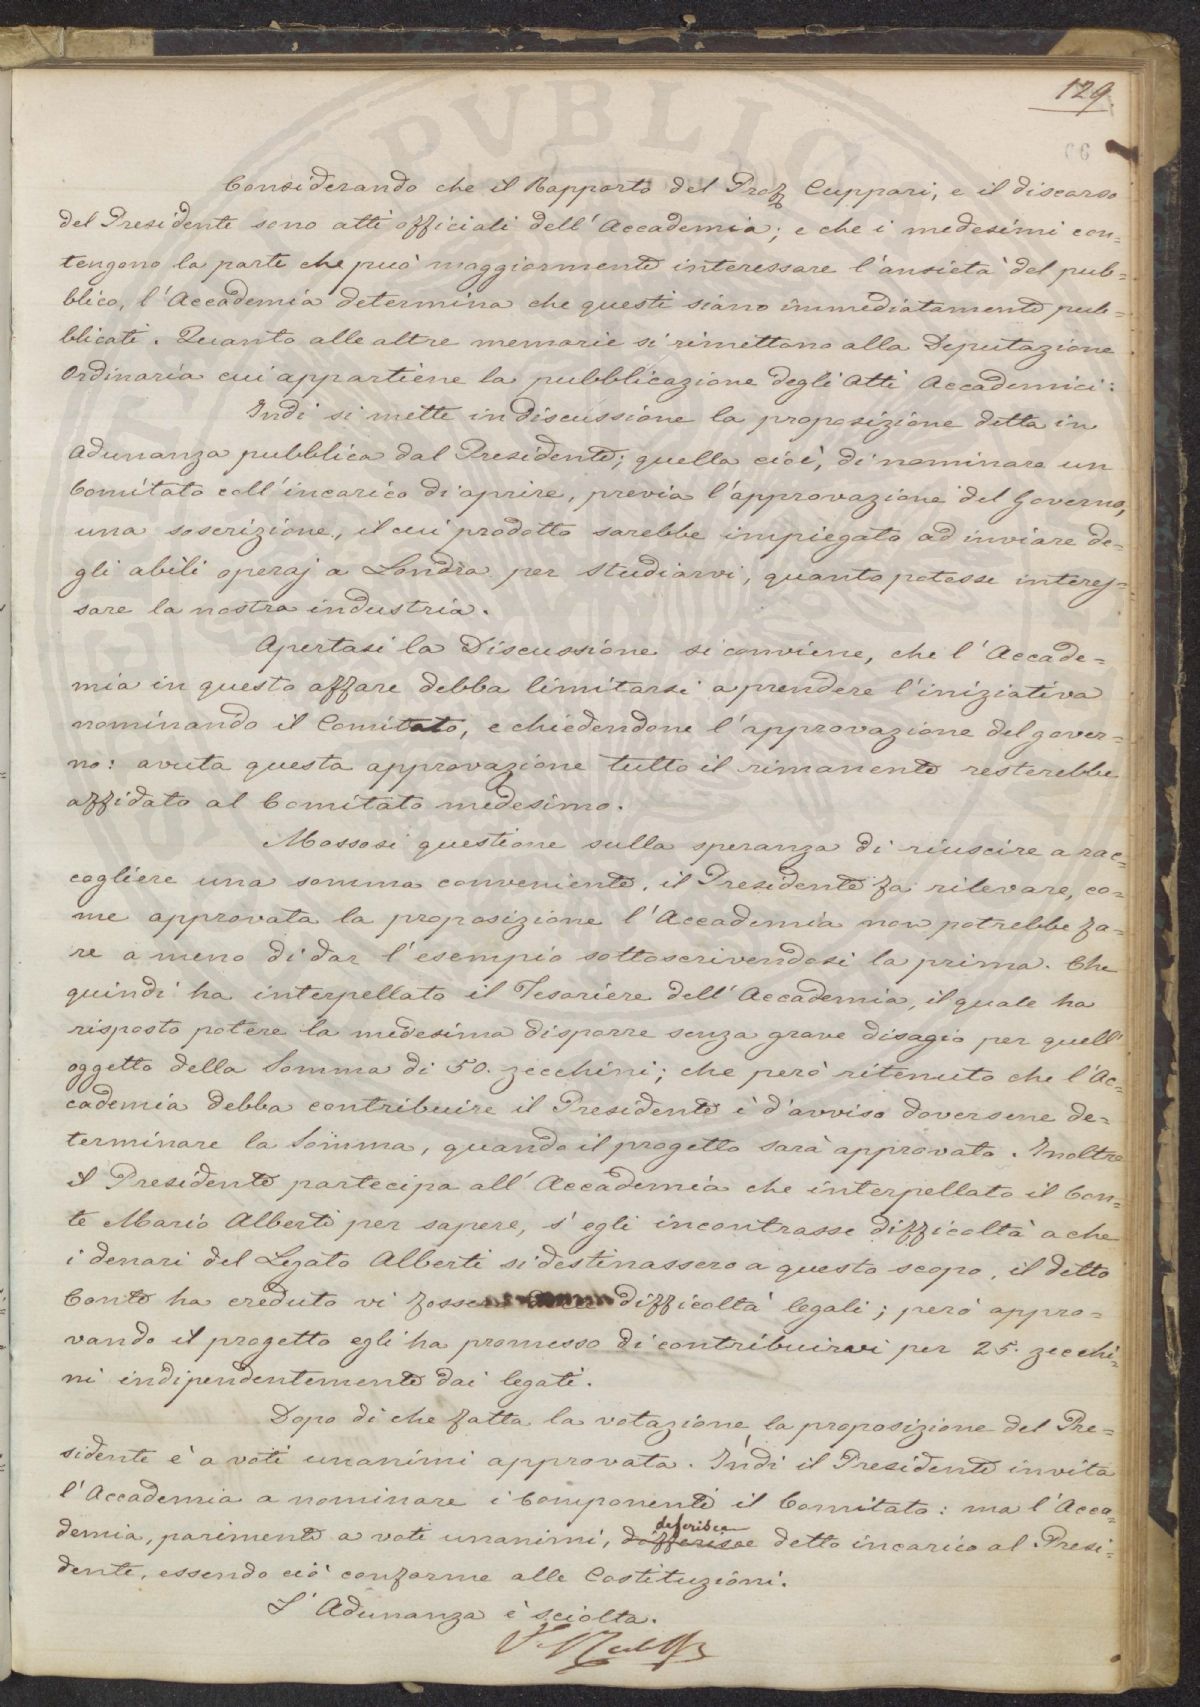 129
66
Considerando che il Rapporto del Prof Cuppari, e il discorso
del Presidente sono atti officiali dell'Accademia; e che i medesimi con=
tengono la parte che può maggiormente interessare l'ansietà del pub=
blico, l'Accademia determina che questi siano immediatamente pub=
blicati. Quanto alle altre memorie si rimettono alla Deputazione
Ordinaria cui appartiene la pubblicazione degli Atti Accademici:
Indi si mette in discussione la proposizione detta in
Adunanza pubblica dal Presidente; quella cioè, di nominare un
Comitato coll'incarico di aprire, previa l'approvazione del Governo,
una soscrizione, il cui prodotto sarebbe impiegato ad inviare de=
gli abili operaj a Londra per studiarvi, quanto potesse interes=
sare la nostra industria.
Apertasi la Discussione si conviene, che l'Accade=
mia in questo affare debba limitarsi a prendere l'iniziativa
nominando il Comitato, e chiedendone l'approvazione del gover=
no: avuta questa approvazione tutto il rimanente resterebbe
affidato al Comitato medesimo.
Mossasi questione sulla speranza di riuscire a rac=
cogliere una somma conveniente, il Presidente fa rilevare, co=
me approvata la proposizione l'Accademia non potrebbe fa=
re a meno di dar l'esempio sottoscrivendosi la prima. Che
quindi ha interpellato il Tesoriere dell'Accademia, il quale ha
risposto potere la medesima disporre senza grave disagio per quell'
oggetto della Somma di 50. zecchini; che però ritenuto che l'Ac=
cademia debba contribuire il Presidente è d'avviso doversene de=
terminare la Somma, quando il progetto sarà approvato. Inoltre
il Presidente partecipa all'Accademia che interpellato il Con=
te Mario Alberti per sapere, s'egli incontrasse difficoltà a che
i denari del Legato Alberti si destinassero a questo scopo, il detto
Conte ha creduto vi fosse difficoltà legali; però appro=
vando il progetto egli ha promesso di contribuirvi per 25. zecchi=
ni indipendentemente dai legati.
Dopo di che fatta la votazione, la proposizione del Pre=
sidente è a voti unanimi approvata. Indi il Presidente invita
l'Accademia a nominare i componenti il Comitato: ma l'Acca=
demia, parimente a voti unanimi, differisce deferisce detto incarico al Presi=
dente, essendo ciò conforme alle Costituzioni.
L'Adunanza è sciolta.